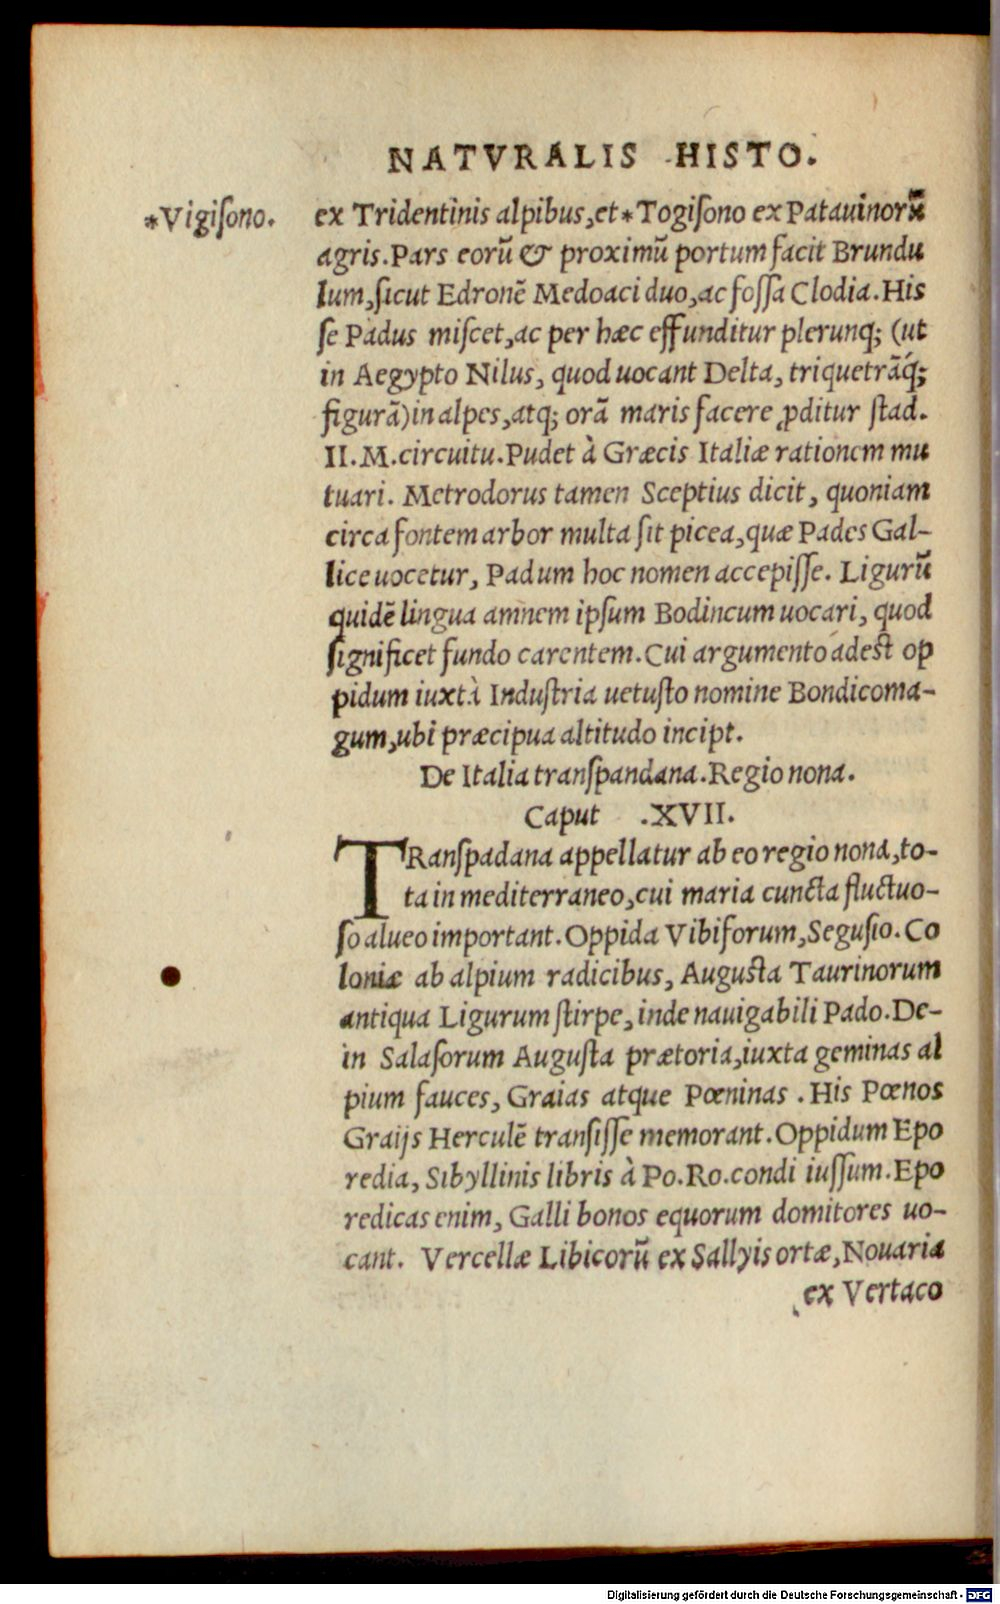 NATVRALIS HISTO.
*Vigiſono.
ex Tridentinis alpibus, et * Togiſono ex Patauinorũ
agris. Pars eorũ & proximũ portum facit Brundu
lum, ſicut Edronẽ Medoaci duo, ac foſſa Clodia. His
ſe Padus miſcet, ac per hæc effunditur plerunq; (ut
in Aegypto Nilus, quod uocant Delta, triquetrãq́;
figurã) in alpes, atq; orã maris facere ꝓditur ſtad.
II.M. circuitu. Pudet à Græcis Italiæ rationem mu
tuari. Metrodorus tamen Sceptius dicit, quoniam
circa fontem arbor multa ſit picea, quæ Pades Gal-
lice uocetur, Padum hoc nomen accepiſſe. Ligurũ
quidẽ lingua amnem ipſum Bodincum uocari, quod
ſignificet fundo carentem. Cui argumento adeſt op
pidum iuxtà Induſtria uetuſto nomine Bondicoma-
gum, ubi præcipua altitudo incipt.
De Italia tranſpandana. Regio nona.
Caput .XVII.
TRanſpadana appellatur ab eo regio nona, to-
ta in mediterraneo, cui maria cuncta fluctuo-
ſo alueo important. Oppida Vibiforum, Seguſio. Co
loniæ ab alpium radicibus, Auguſta Taurinorum
antiqua Ligurum ſtirpe, inde nauigabili Pado. De-
in Salaſorum Auguſta prætoria, iuxta geminas al
pium fauces, Graias atque Pœninas. His Pœnos
Graijs Herculẽ tranſiſſe memorant. Oppidum Epo
redia, Sibyllinis libris à Po. Ro. condi iuſſum. Epo
redicas enim, Galli bonos equorum domitores uo-
cant. Vercellæ Libicorũ ex Sallyis ortæ, Nouaria
ex Vertaco
Digitalisierung gefördert durch die Deutsche Forschungsgemeinschaft - DFG